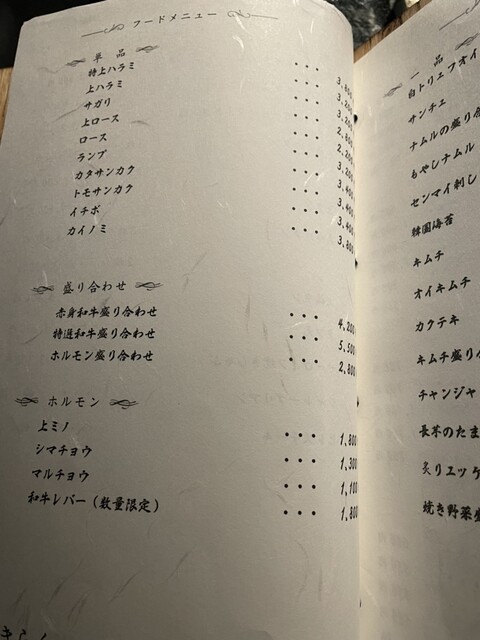 フードメニュー
単品
特上ハラミ ・・・ 3,800
上ハラミ ・・・ 3,200
サガリ ・・・ 3,200
上ロース ・・・ 2,800
ロース ・・・ 2,200
ランプ ・・・ 3,200
カタサンカク ・・・ 3,400
トモサンカク ・・・ 3,400
イチボ ・・・ 3,400
カイノミ ・・・ 3,800
盛り合わせ
赤身和牛盛り合わせ ・・・ 4,200
特選和牛盛り合わせ ・・・ 5,500
ホルモン盛り合わせ ・・・ 2,800
ホルモン
上ミノ ・・・ 1,800
シマチョウ ・・・ 1,300
マルチョウ ・・・ 1,100
和牛レバー(数量限定) ・・・ 1,800
一品
白トリュフオイ
サンチェ
ナムルの盛り合
もやしナムル
センマイ刺し
韓国海苔
キムチ
オイキムチ
カクテキ
キムチ盛り
チャンジャ
長芋のたま
炙りユッケ
焼き野菜盛